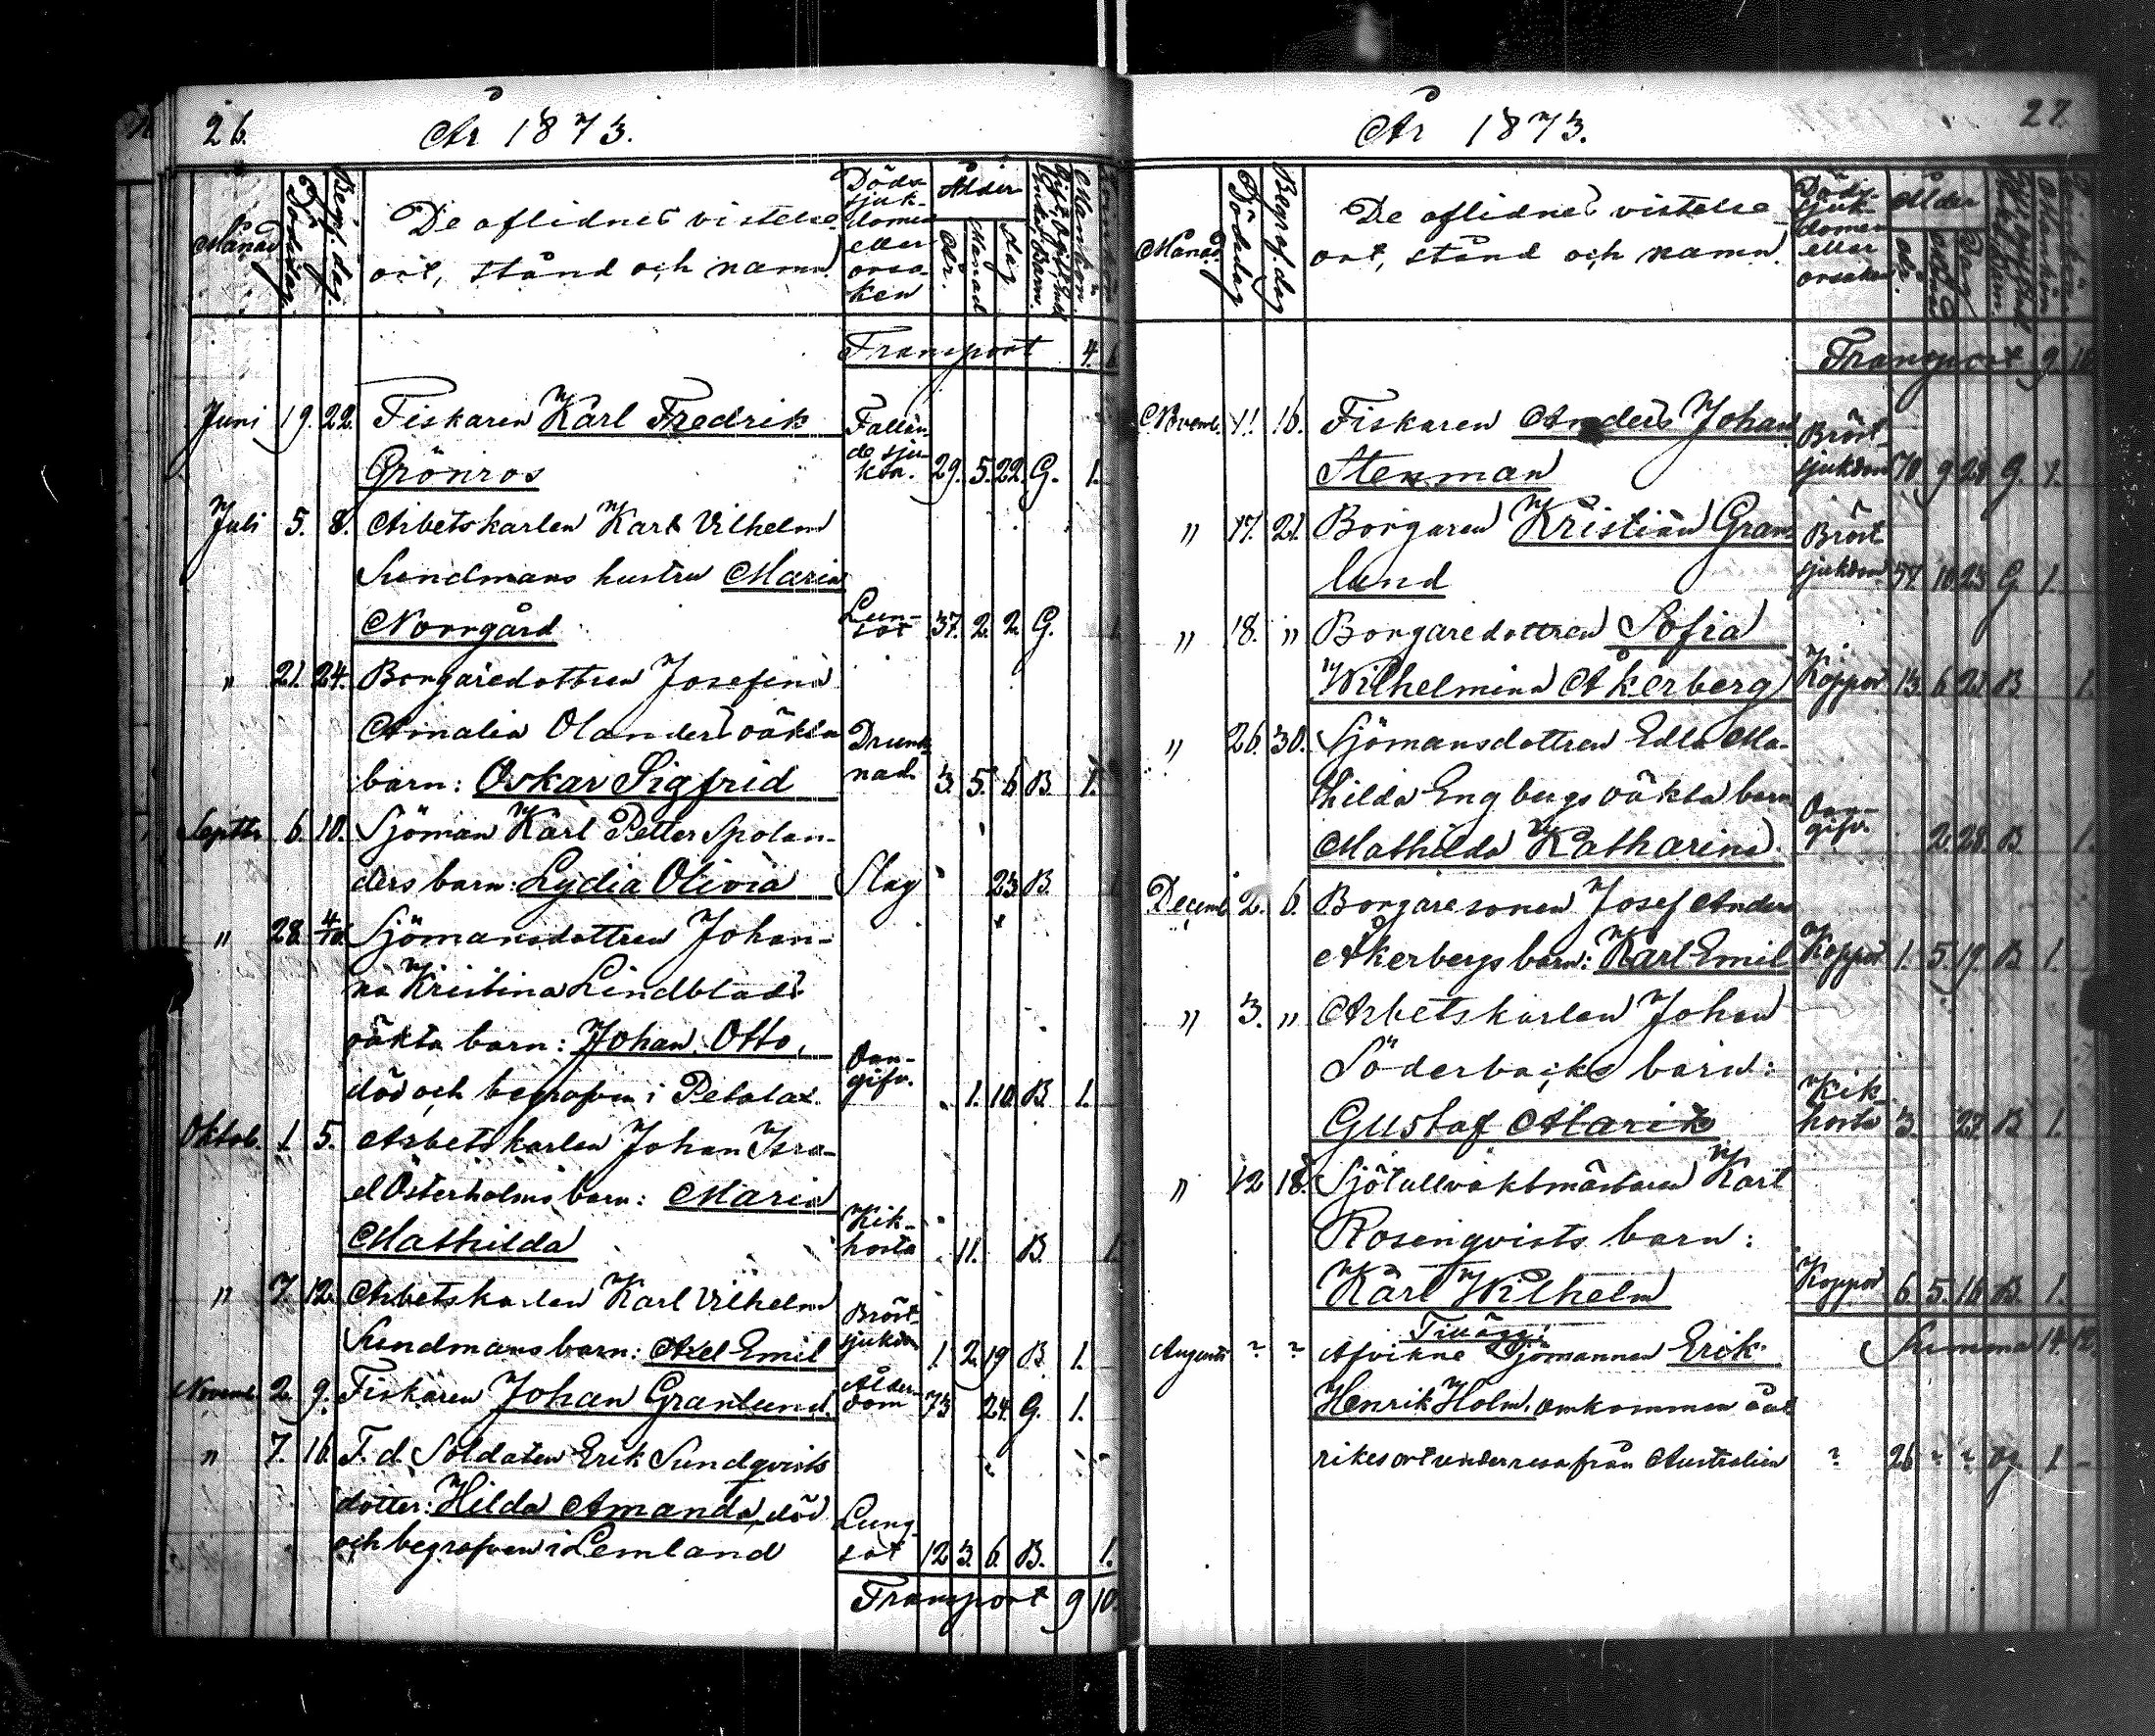 26.
År 1873.
Månad
Dödsdag.
Begrf. dag.
De aflidnes vistelse-
ort, stånd och namn.
Döds-
sjuk-
domen
eller
orsa-
ken
Ålder
År.
Månad
Dag
Mankön.
Transport 4. 6
Juni 19. 22. Fiskaren Karl Fredrik
Grönros
Fallan-
de sju-
kan. 29. 5. 22. G. 1.
Juli 5. 8. Arbetskarlen Karl Vilhelm
Sundmans hustru Maria
Norrgård
Lun-
sot 37. 2. 2. G. 1
" 21. 24. Borgaredottren Josefina
Amalia Olanders oäkta
barn: Oskar Sigfrid
Drunk-
nad 3. 5. 6. B. 1.
Septbr 6. 10. Sjöman Karl Petter Spolan-
ders barn: Lydia Olivia Slag 23. B. 1
" 28. 4/10. Sjömansdottren Johan-
na Kristina Lindblads
oäkta barn: Johan Otto,
död och begrafven i Petalax.
Oan-
gifv. 1. 10. B. 1.
Oktob. 1. 5. Arbetskarlen Johan Isra-
el Österholms barn: Maria
Mathilda
Kik-
hosta 11. B. 1.
" 7. 12. Arbetskarlen Karl Vilhelm
Sundmans barn: Axel Emil
Bröst-
sjukdom 1. 2. 19 B. 1.
Novemb. 2. 9. Fiskaren Johan Granlund.
Ålder-
dom 73 24. G. 1.
" 7. 16. F. d. Soldaten Erik Sundqvists
dotter: Hilda Amanda, död
och begrafven i Lemland
Lung-
sot 12 3. 6. B. 1.
Transport 9 10.
27
År 1873.
Månad.
Dödsdag
Begraf. dag
De aflidnes vistelse-
ort, stånd och namn.
Döds-
sjuk-
domen
eller
orsaken
Ålder
År.
Dag
Mankön
Transport 9 10
Novemb. 11. 16. Fiskaren Anders Johan
Stenman
Bröst-
sjukdom 70. 9 28 G. 1.
" 17. 21. Borgaren Kristian Gran-
lund
Bröst-
sjukdom 57. 10 23 G 1.
" 18. " Borgaredottren Sofia
Wilhelmina Åkerberg Koppor 13. 6 21 B 1.
" 26. 30. Sjömansdottren Edla Ma-
thilda Engbergs oäkta barn
Mathilda Katharina.
Oan-
gifv. 2. 28. B 1.
Decemb. 2. 6. Borgaresonen Josef Anders
Åkerbergs barn: Karl Emil Koppor 1. 5. 19. B 1.
" 3. " Arbetskarlen Johan
Söderbacks barn:
Gustaf Alarik
Kik-
hosta 3. 27. B 1.
" 12 18. Sjötullvaktmästaren Karl
Rosenqvists barn:
Karl Wilhelm Koppor 6. 5. 16 B. 1.
Summa 14. 12.
Tillägg:
Augusti ? ? Afvikne Sjömannen Erik
Henrik Holm, omkommen å ut-
rikes ort under resa från Australien ? 26 ? ? Og 1 -